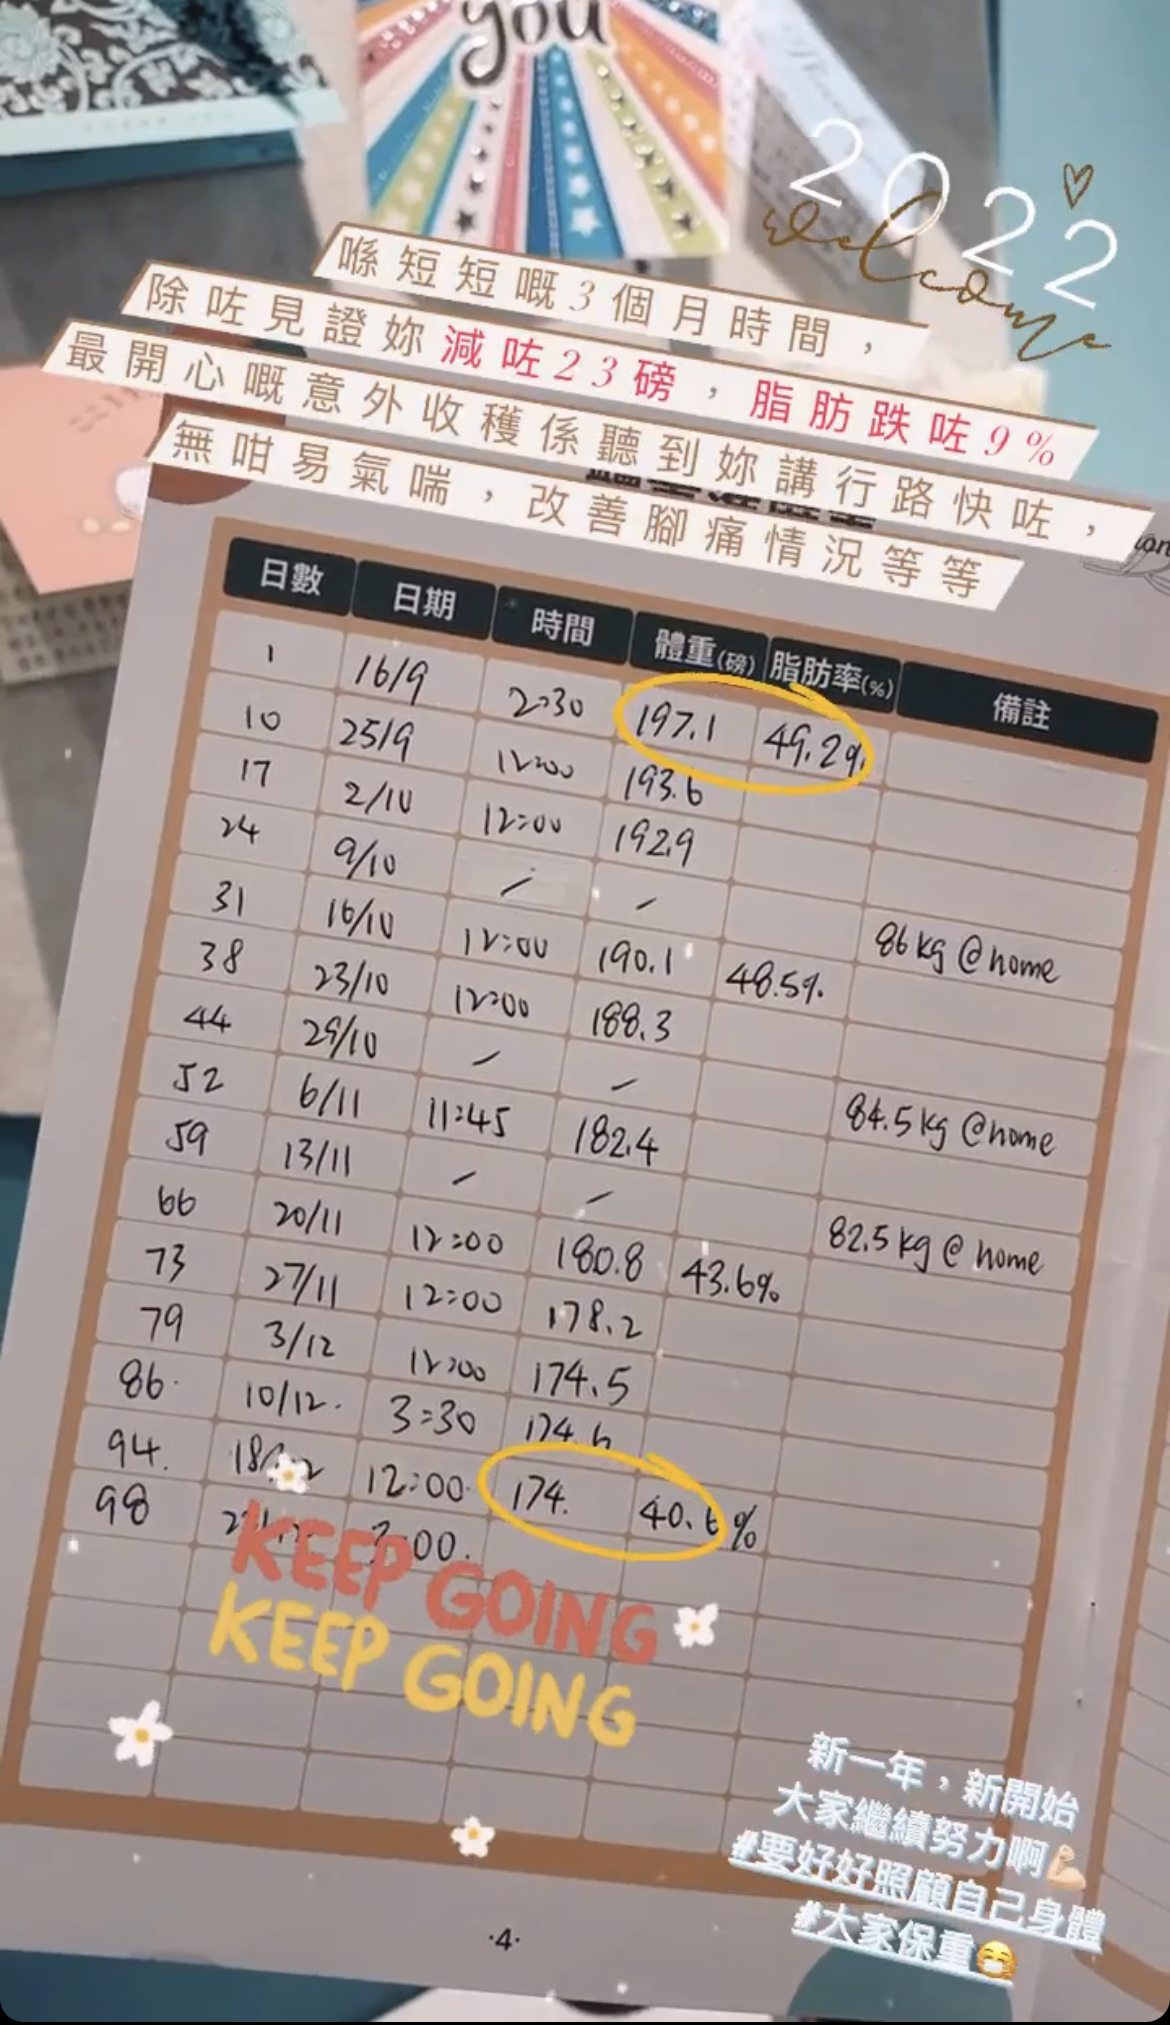 you
2022
welcome
喺短短嘅3個月時間，
除咗見證妳減咗23磅，脂肪跌咗9%
最開心嘅意外收穫係聽到妳講行路快咗，
無咁易氣喘，改善腳痛情況等等
日數 日期 時間 體重(磅) 脂肪率(%) 備註
1 16/9 2:30 197.1 49.2%
10 25/9 12:00 193.6
17 2/10 12:00 192.9
24 9/10 / / 86kg @home
31 16/10 12:00 190.1 48.5%
38 23/10 12:00 188.3
44 29/10 / / 84.5kg @home
52 6/11 11:45 182.4
59 13/11 / / 82.5kg @ home
66 20/11 12:00 180.8 43.6%
73 27/11 12:00 178.2
79 3/12 12:00 174.5
86. 10/12. 3:30 174.6
94. 12:00. 174. 40.6%
98
KEEP GOING
KEEP GOING
新一年，新開始
大家繼續努力啊💪🏻
#要好好照顧自己身體
#大家保重😷
·4·